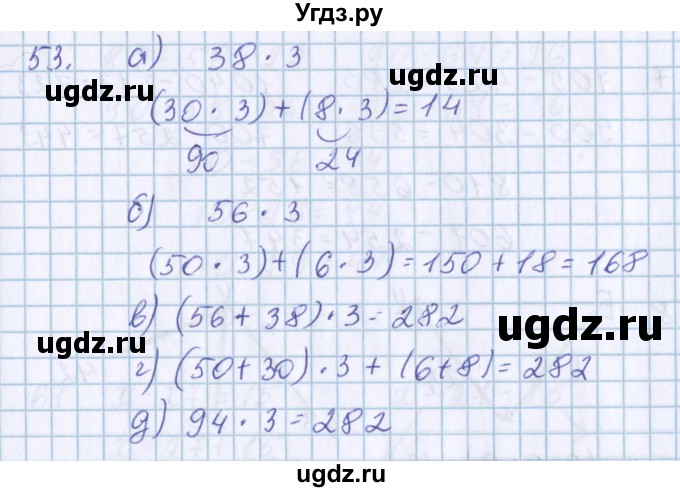 Угдз.ру
53. а) 38 · 3
ugdz.ru ugdz.ru
(30 · 3) + (8 · 3) = 14
90 24
б) 56 · 3
(50 · 3) + (6 · 3) = 150 + 18 = 168
в) (56 + 38) · 3 = 282
ugdz.ru ugdz.ru
г) (50 + 30) · 3 + (6 + 8) = 282
д) 94 · 3 = 282
ugdz.ru